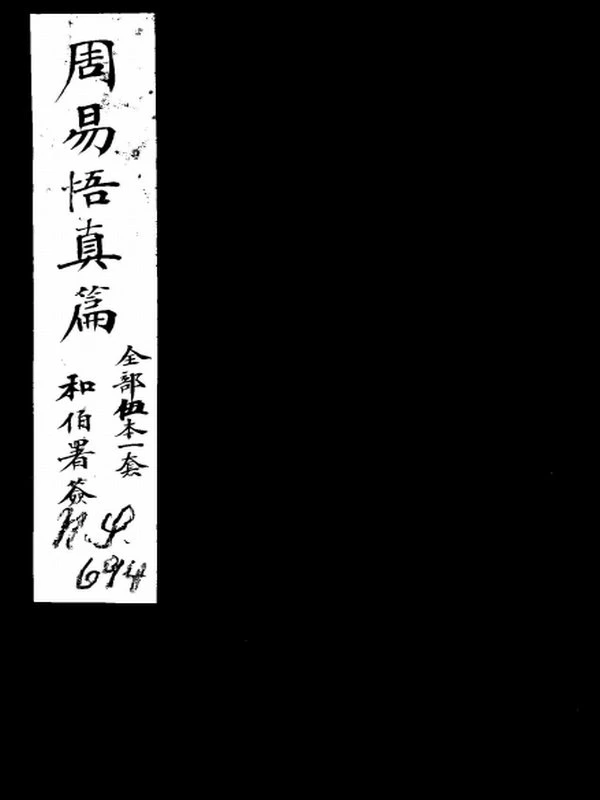 周易悟真篇
全部伍本一套
和伯署簽